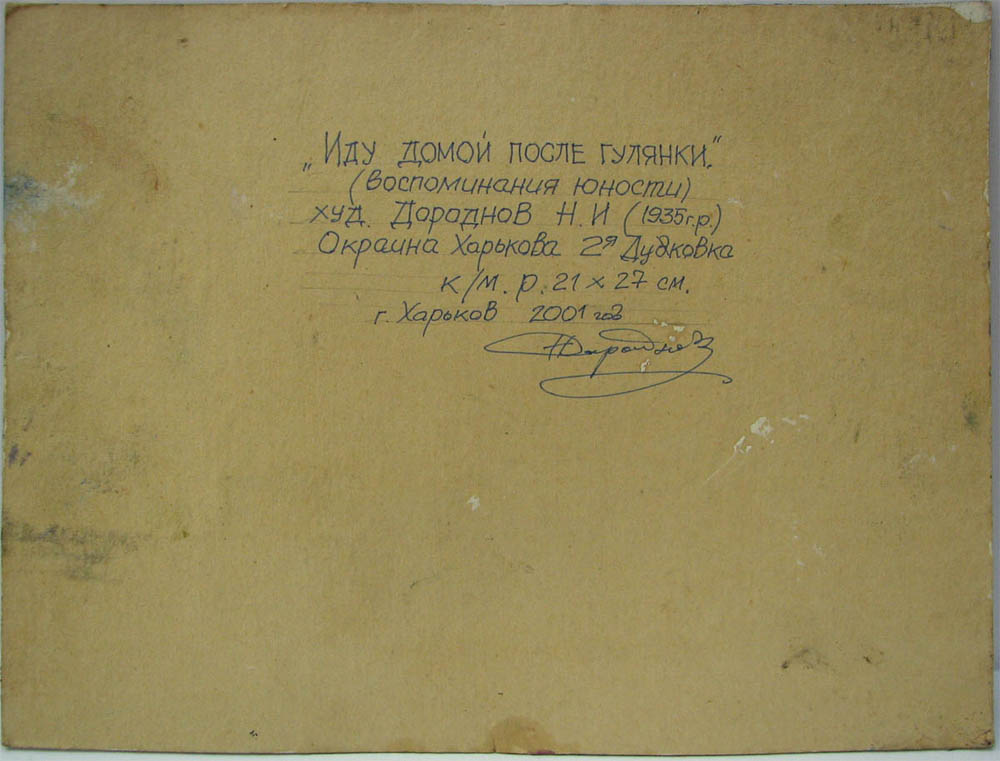 „Иду домой после гулянки."
(воспоминания юности)
худ. Дараднов Н.И (1935г.р.)
Окраина Харькова 2я Дудковка
к/м. р. 21 x 27 см.
г. Харьков 2001 год